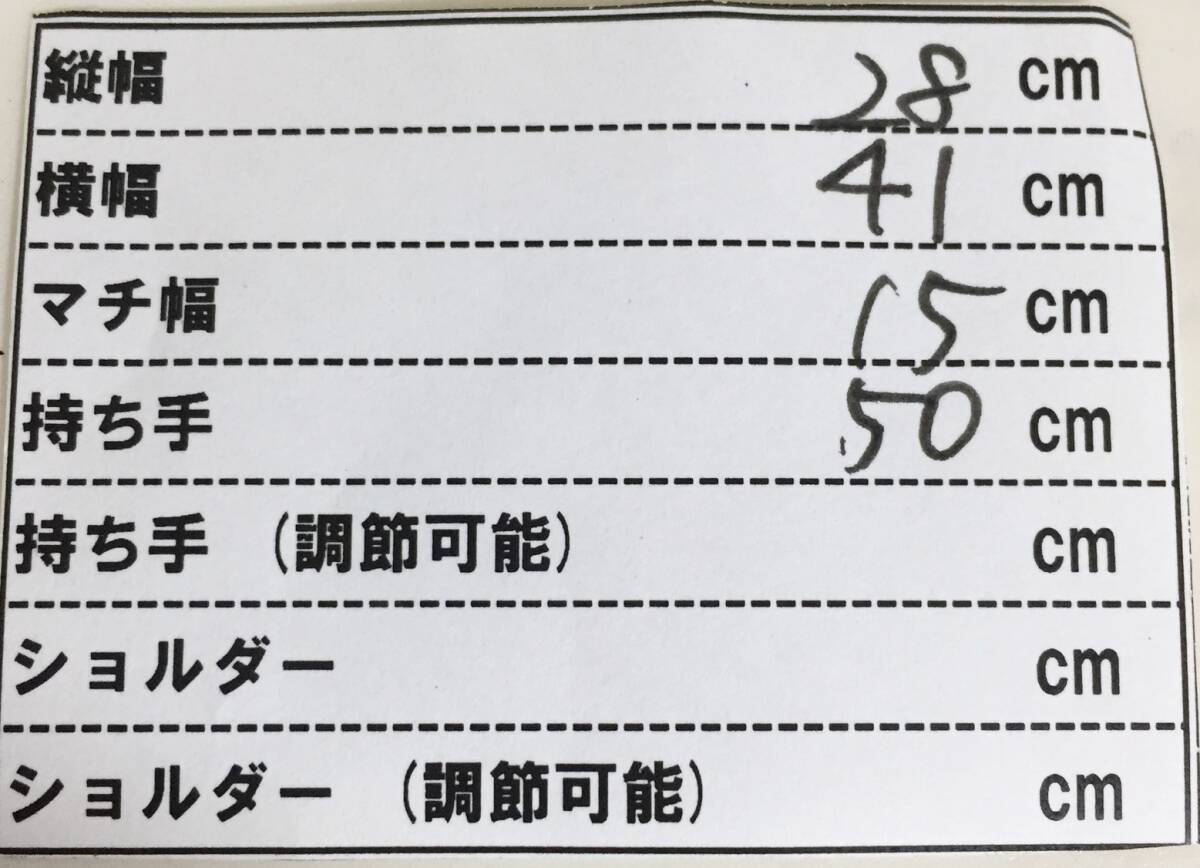 縦幅 28 cm
横幅 41 cm
マチ幅 15 cm
持ち手 50 cm
持ち手 (調節可能) cm
ショルダー cm
ショルダー (調節可能) cm